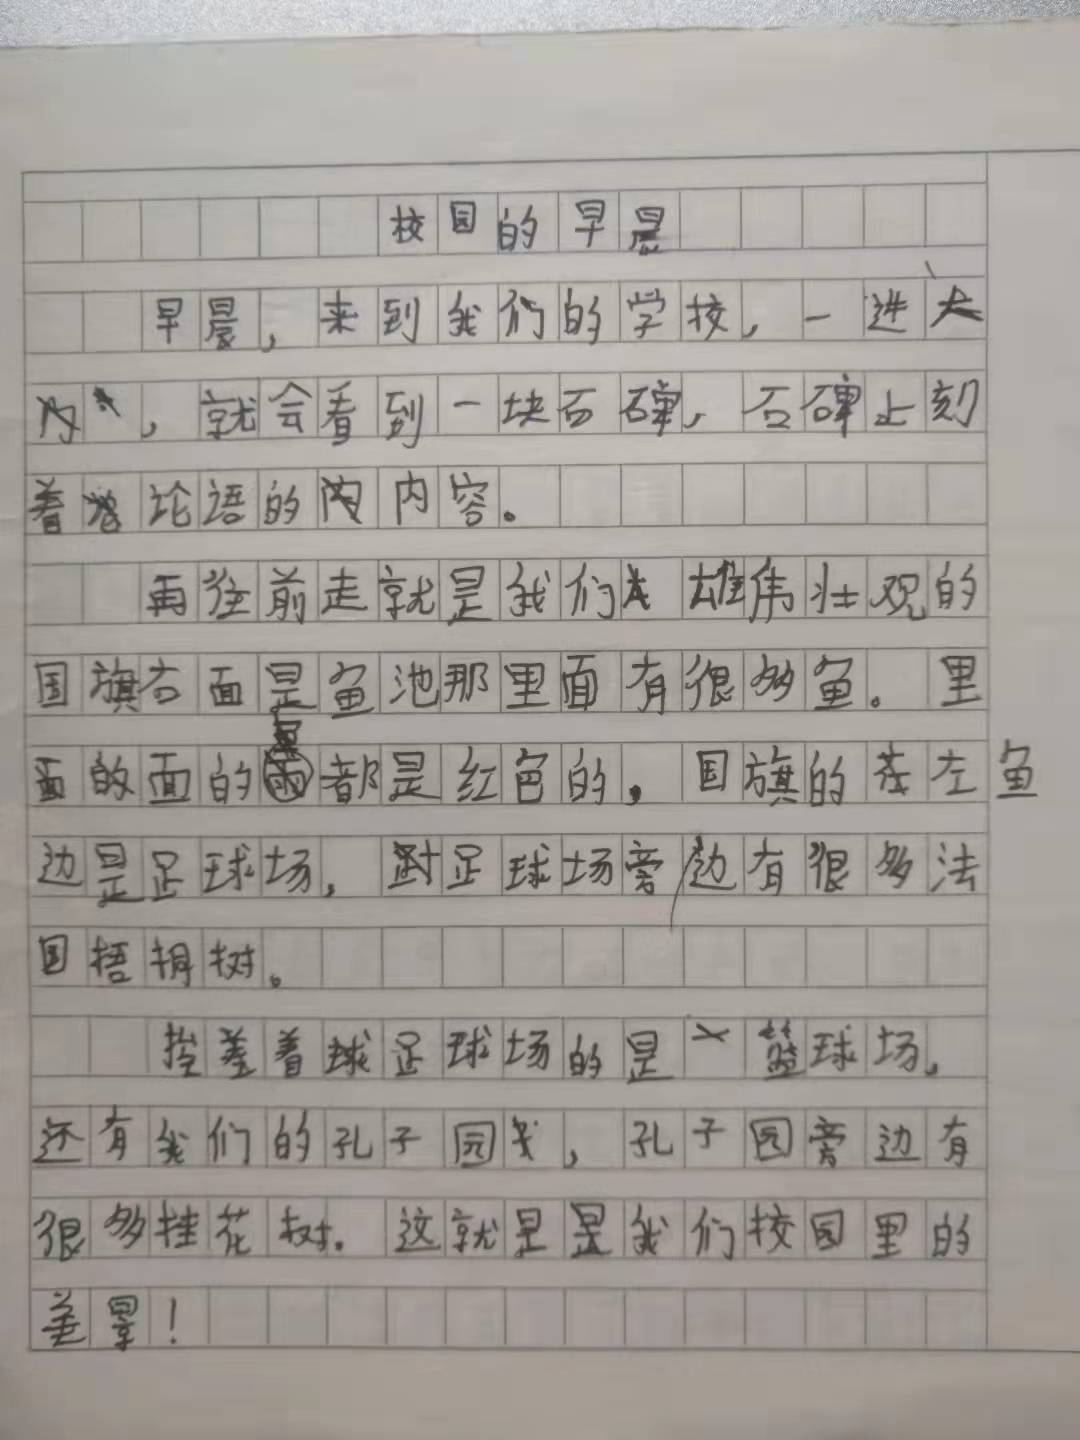 校园的早晨
早晨，来到我们的学校，一进大
内，就会看到一块石碑，石碑上刻
着论语的内容。
再往前走就是我们雄伟壮观的
国旗右面是鱼池那里面有很多鱼。里
面的面的都是红色的，国旗的左
鱼
边是足球场，足球场旁边有很多法
国梧桐树。
挨着足球场的是篮球场，
还有我们的孔子园，孔子园旁边有
很多桂花树。这就是是我们校园里的
美景！